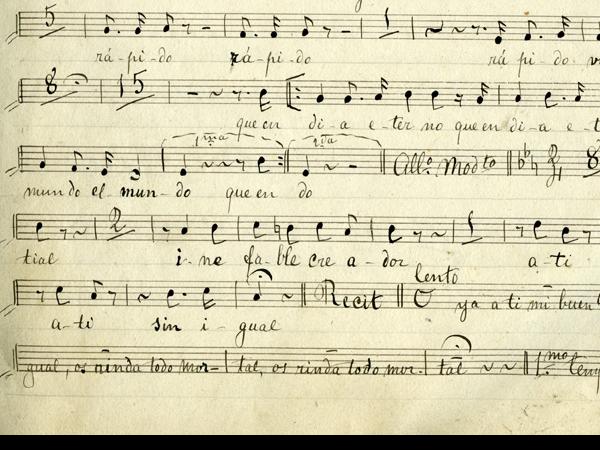 5 1
rá-pi-do rá-pi-do rá pi-do
8 15
que en di-a e-ter no que en di-a e-t
1ma
All.o Mod.to 2 8
mundo el mun-do que en do
2 1
tial i-ne fa-ble cre a-dor a-ti
Recit lento ya a ti mi buen
a-ti sin i-gual
gual, os rinda todo mor- tal, os rinda todo mor. tal 1.mo